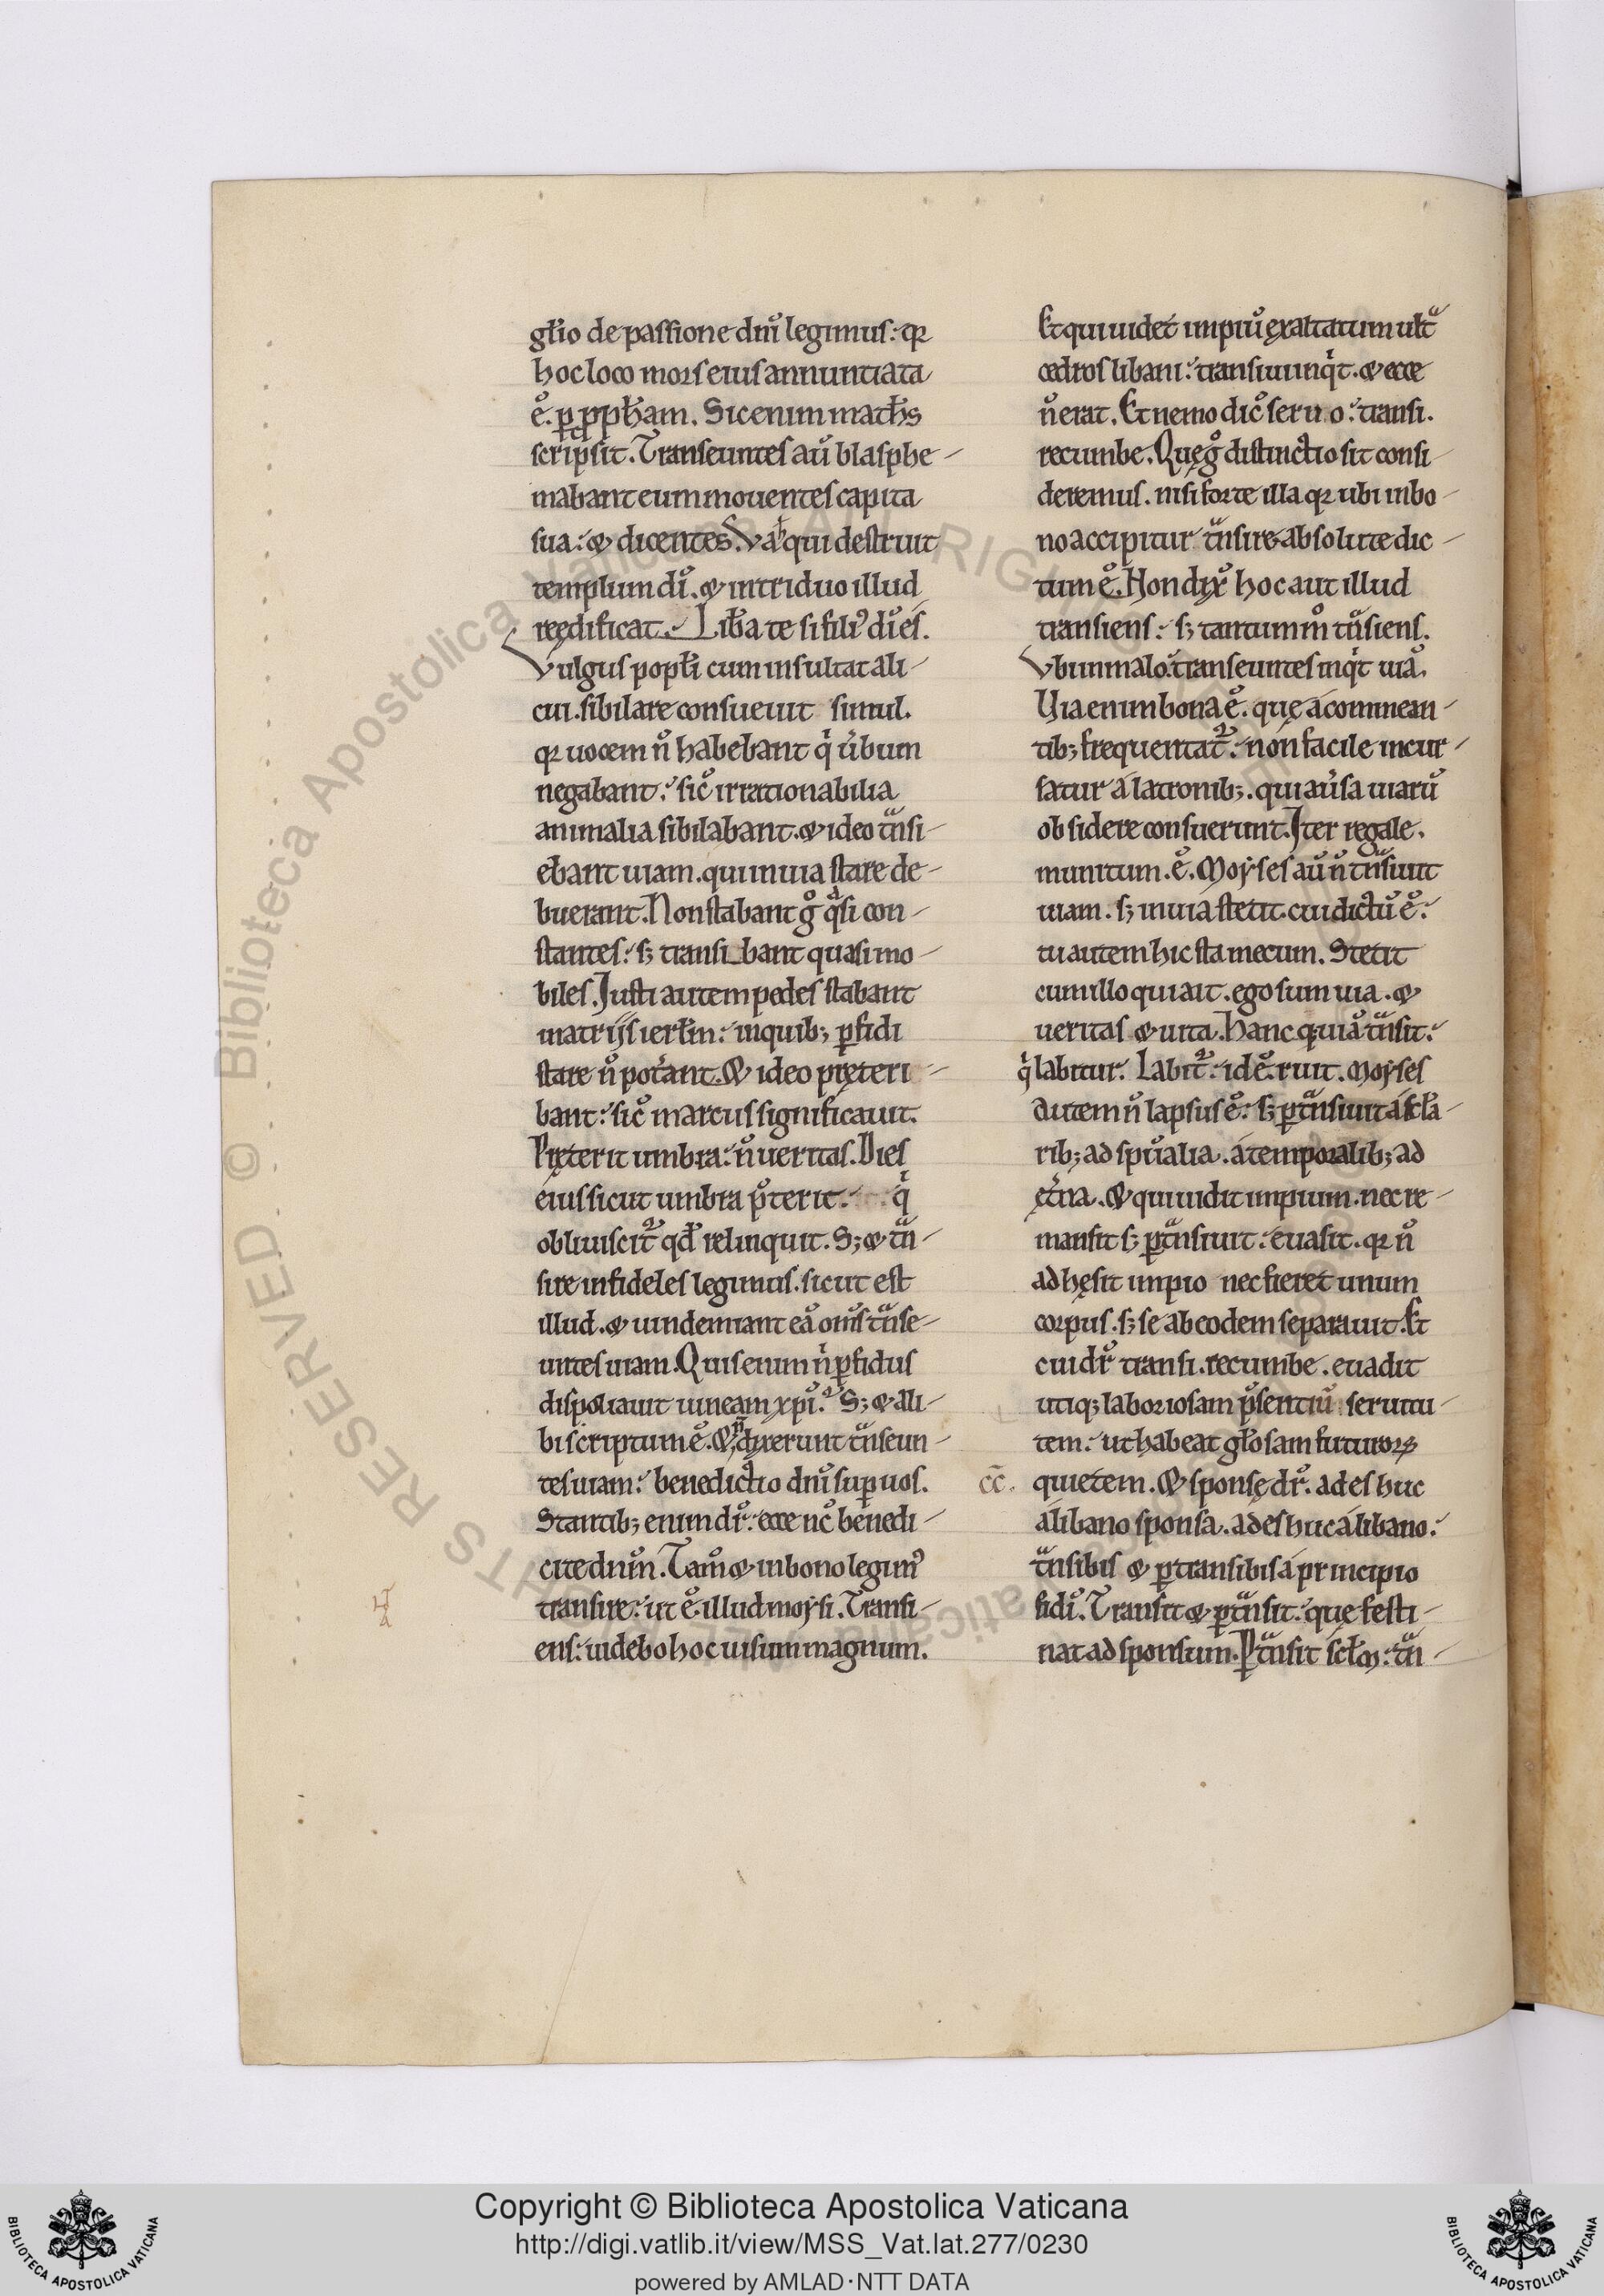 gl̄io de passione dnī legimus: qꝛ
hoc loco mors eius annuntiata
ē. ꝑ ꝓph̄am. Sic enim math̄s
scripsit. Transeuntes aū blasphe-
mabant eum mouentes capita
sua: & dicentes. Va qui destruit
templum dī. & in triduo illud
reędificat. Lib̄a te si filiꝰ dī es.
Vulgus popl̄i cum insultat ali-
cui. sibilare consueuit simul.
qꝛ uocem n̄ habebant qͥ ūbum
negabant: sic̄ irrationabilia
animalia sibilabant. & ideo tᵃnsi-
ebant uiam. qui in uia stare de-
buerant. Non stabant gͦ qᵃsi con-
stantes: sꝫ transi bant quasi mo-
biles. Justi autem pedes stabant
in atrijs ierl̄m: in quibꝫ ꝑfidi
stare n̄ pot̄ant. & ideo pręteri-
bant: sic̄ marcus significauit.
Pręterit umbra: n̄ ueritas. Dies
eius sicut umbra p̄terit: qͥ
obliuiscit᷑ qd̄ relinquit. Sꝫ & tᵃn-
sire infideles legimus. sicut est
illud. & uindemiant eā om̄s tᵃnse-
untes uiam. Quis enim nͥ ꝑfidus
dispoliauit uineam xpī? Sꝫ & ali-
bi scriptum ē. & n̄ dixerunt tᵃnseun-
tes uiam: benedictio dnī suꝑ uos.
Stantibꝫ enim dr̄: ecce nc̄ benedi-
cite dnm̄. Tam̄ & in bono legimꝰ
transire: ut ē. illud moysi. Transi-
ens: uidebo hoc uisum magnum.
Et qui uidet impiū exaltatum ultᵃ
cedros libani: transiui inqͥt. & ecce
n̄ erat. Et nemo dic̄ seruo: transi.
recumbe. Quę gͦ distinctio sit consi-
deremus. nisi forte illa qꝛ ubi in bo-
no accipitur tᵃnsire absolute dic-
tum ē. Non dix̄ hoc aut illud
transiens: sꝫ tantummͦ tᵃnsiens.
Vbi in malo: transeuntes inqͥt uiā.
Uia enim bona ē. quę a commean-
tibꝫ frequentat᷑: non facile incur-
satur a latronibꝫ. qui aūsa uiarū
obsidere consuerunt. Iter regale.
munitum. ē. Moyses aū n̄ tᵃnsiuit
uiam. sꝫ in uia stetit. cui dictū ē:
tu autem hic sta mecum. Stetit
cum illo qui ait. ego sum uia. &
ueritas & uita. Hanc qꝛ uiā tᵃnsit:
qͥ labitur. Labit᷑: id ē. ruit. Moyses
autem n̄ lapsus ē: sꝫ ꝑtᵃnsiuit a scl̄a-
ribꝫ ad spūalia. a temporalibꝫ ad
ęt̄na. & qui uidit impium. nec re-
mansit sꝫ ꝑtᵃnsiuit: euasit. qꝛ n̄
adhęsit impio nec fieret unum
corpus. sꝫ se ab eodem separauit. Et
cui dr̄ transi. recumbe. euadit
utiqꝫ laboriosam p̄sentiū seruitu-
tem: ut habeat gl̄osam futuroꝝ
cc̄. quietem. & sponsę dr̄. ades huc
a libano sponsa. ades huc a libano:
tᵃnsibis & ꝑtransibis a principio
fidī. Transit & ꝑtᵃnsit: quę festi-
nat ad sponsum. Ꝑtᵃnsit scl̄m: tᵃn-
Copyright © Biblioteca Apostolica Vaticana
http://digi.vatlib.it/view/MSS_Vat.lat.277/0230
powered by AMLAD·NTT DATA